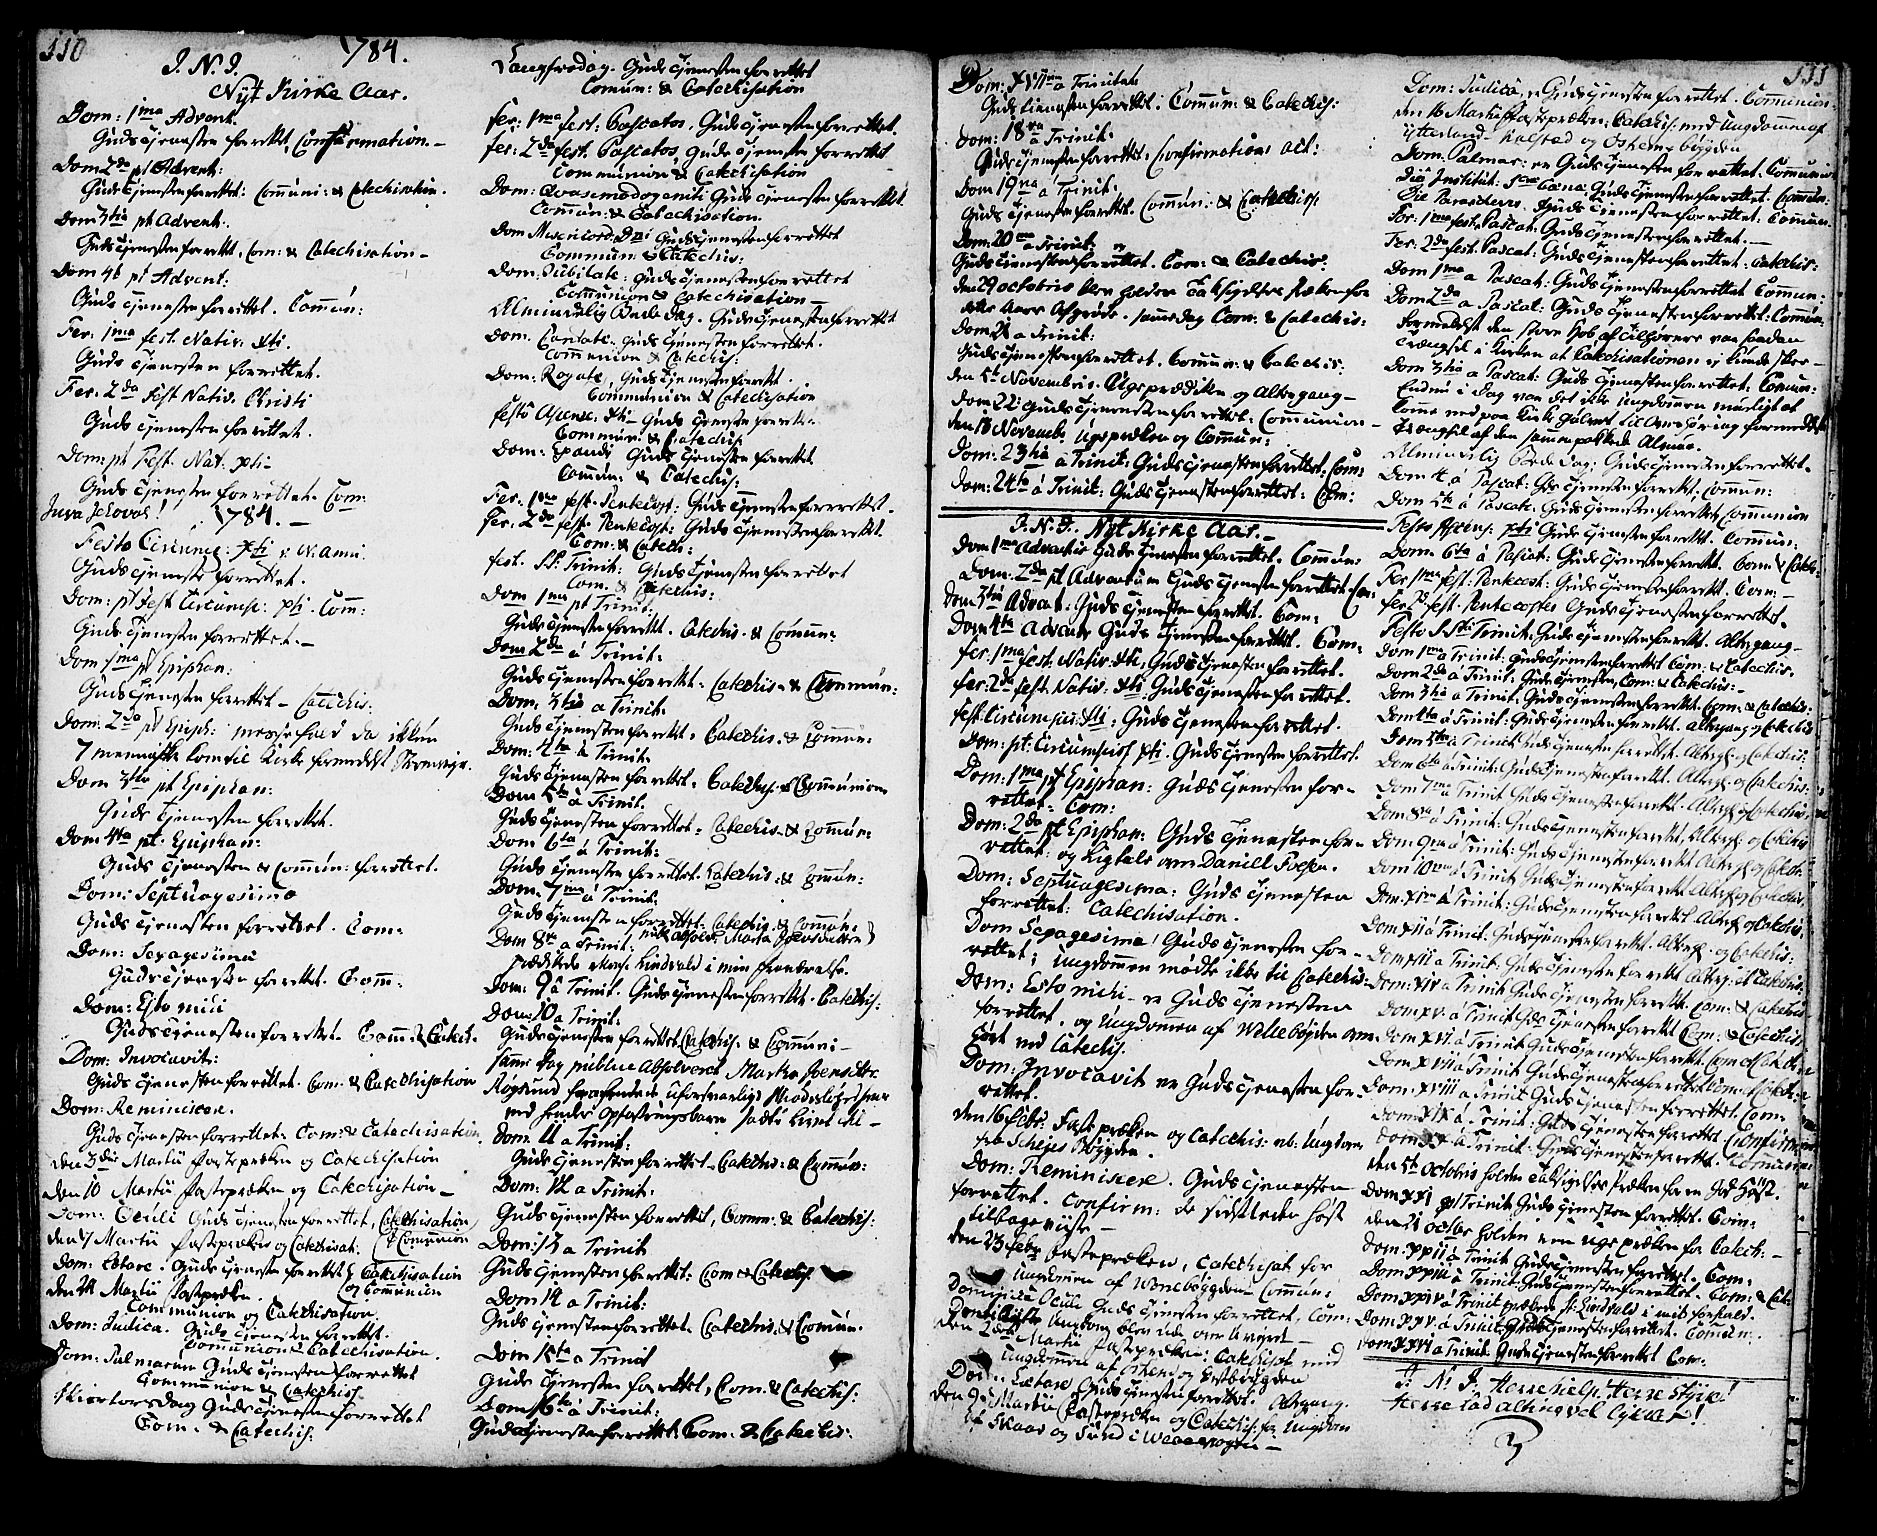 110
J. N. J. 1784.
Nyt Kirke Aar.
Dom: 1ma Advent:
Guds Tjenesten forrettet, Confirmation.
Dom 2da pt Advent:
Guds Tjenesten forrettet: Comuni: & Catechisation.
Dom 3tia pt Advent:
Guds Tjenesten forrettet, Com: & Catechisation
Dom 4t pt Advent:
Guds Tjenesten forrettet. Commún:
Fer: 1ma fest. Nativ: Xti.
Guds Tjenesten forrettet.
Fer: 2da Fest Nativ. Christi
Guds Tjenesten forrettet.
Dom: pt Fest. Nat. Xti
Guds Tjenesten forrettet. Com:
Juva Jehovah! 1784.
Festo Circumc: Xti
Guds Tjeneste forrettet.
Dom: pt Fest Circumc: Xti. Com:
Guds Tjenesten forrettet.
Dom 1ma pt Epiphan:
Guds Tjenesten forrettet – Catechis:
Dom: 2da pt Epiph: Messefald da ikkun
7 mennisker kom til Kirke formedelst
Dom 3tia pt Epiphan:
Guds Tjenesten forrettet.
Dom 4ta pt. Epiphan:
Guds Tjenesten & Commún: forrettet.
Dom: Septuagesima
Guds Tjenesten forrettet. Com:
Dom: Sexagesima
Guds Tjenesten forrettet. Com:
Dom: Esto mihi
Guds Tjenesten forrettet. Com: & Catech:
Dom: Invocavit:
Guds Tjenesten forrettet. Com: & Catechisation
Dom: Reminiscere.
Guds Tjenesten forrettet. Com: & Catechisation
den 3die Martii Fastepræken og Catechisation
den 10 Martii Fastepræken og Catechisation
Dom: Oculi Guds Tjenesten forrettet, Catechisation & Communion
den 17 Martii Fastepræken og Catechisat:
Dom: Lætare. Guds Tjenesten forrettet Catechisation og Communion
den 24 Martii Fastepræken.
Communion og Catechisation
Dom: Judica. Guds Tjenesten forrettet.
Communion & Catechisation.
Dom: Palmarum Guds Tjenesten forrettet
Communion & Catechis:
Skiertorsdag Guds Tjenesten forrettet
Com: & Catechis:
Langfredag. Guds Tjenesten forrettet
Común: & Catechisation
fer: 1ma fest: Pascatos. Guds Tjenesten forrettet.
fer: 2da fest. Pascatos, Guds Tjenesten forrettet
Communion & Catechisation
Dom: Qvasimodogeniti Guds Tjenesten forrettet
Común: & Catechisation
Dom Misericord: Dni Guds Tjenesten forrettet
Commun: & Catechis:
Dom: Jubilate: Guds Tjenesten forrettet
Communion & Catechisation
Almindelig Bede dag. Guds Tjenesten forrettet
Dom. Cantate. Guds Tjenesten forrettet.
Communion & Catechis:
Dom: Rogate, Guds Tjenesten forrettet.
Communion & Catechisation
festo Ascens: Xti Guds Tjenesten forrettet
Commun: & Catechis:
Dom: Exaudi Guds Tjenesten forrettet
Común: & Catechis:
Fer: 1ma fest. Pentecost: Guds Tjenesten forrettet.
Fer: 2da fest: Pentecost: Guds Tjenesten forrettet.
Com: & Catech:
fest. SS. Trinit: Guds Tjenesten forrettet
Com. & Catechis:
Dom 1ma pt Trinit:
Guds Tjenesten forrettet. Catechis. & Comun:
Dom 2da à Trinit:
Guds Tjenesten forrettet. Catechis. & Commún:
Dom: 3tia a Trinit.
Guds Tjenesten forrettet. Catechis. & Commún:
Dom: 4ta à Trinit.
Guds Tjenesten forrettet. Catechis. & Communion
Dom 5ta à Trinit.
Guds Tjenesten forrettet. Catechis. & Común:
Dom 6ta à Trinit:
Guds Tjenesten forrettet. Catechis: & Común:
Dom: 7ma à Trinit:
Guds Tjenesten forrettet. Catechis. & Común:
Dom 8va à Trinit:
prædikede Mons: Lindvald i min Nærværelse.
Dom: 9 à Trinit. Guds Tjenesten forrettet. Catechis:
Dom 10 à Trinit:
Guds Tjenesten forrettet Catechis. & Comúni
samme Dag publice absolveret Martha
Dom: 11 a Trinit:
Guds Tjenesten forrettet. Catechis: & Común:
Dom: 12 a Trinit:
Guds Tjenesten forrettet, Comm: & Catechis:
Dom: 13 a Trinit
Guds Tjenesten forrettet: Com & Catechis
Dom 14 a Trinit:
Guds Tjenesten forrettet. Catechis. & Común.
Dom 15ta a Trinit
Guds Tjenesten forrettet, Com. & Catechis:
Dom 16ta à Trinit:
Guds Tjenesten forrettet. Com. & Catechis:
111
Dom: XVIIma a Trinitat
Guds Tienesten forrettet. Comun: & Catechis:
Dom: 18va a Trinit:
Guds Tjenesten forrettet: Confirmations act:
Dom 19na a Trinit:
Guds Tjenesten forrettet. Común: & Catechis:
Dom: 20ma a Trinit:
Guds Tjenesten forrettet. Com: & Catechis:
den 29 octobris blev holden Taksigelses Præken for
dette Aars Afgrøde. samme dag Com: & Catechis:
Dom 21 a Trinit:
Guds Tjenesten forrettet. Commun: & Catechis:
den 5t Novembris. Ugeprædiken og Altergang
Dom 22: Guds Tjenesten forrettet: Communion
den 18 Novemb: Ugepræken og Commun:
Dom: 23tia à Trinit: Guds Tjenesten forrettet. Com:
Dom: 24ta à Trinit: Guds Tjenesten forrettet: Com:
J. N. J. Nyt Kirke Aar.
Dom 1ma Adventus Guds Tjenesten forrettet. Commún:
Dom: 2da pt Adventum Guds Tjenesten forrettet Com:
Dom 3tia Advent: Guds Tjenesten forrettet. Com:
Dom 4ta Advent: Guds Tjenesten forrettet. Com:
fer: 1ma fest. Nativ: Xti; Guds Tjenesten forrettet.
fer: 2da fest. Nativ: Xti: Guds Tjenesten forrettet.
fest: Circumcis: Xti: Guds Tjenesten forrettet.
Dom: pt: Circumcis Xti. Guds Tjenesten forrettet.
Dom: 1ma pt Epiphan: Guds Tjenesten for-
rettet. Com:
Dom: 2da pt Epiphan: Guds Tjenesten for-
rettet: og Ligtale over Daniel
Dom: Septuagesima: Guds Tjenesten
forrettet: Catechisation.
Dom Sexagesima! Guds Tjenesten for-
rettet; Ungdommen mødte ikke til Catechis:
Dom: Esto mihi er Guds Tjenesten
forrettet. og Ungdommen af
hørt ved Catechis.
Dom: Invocavit er Guds Tjenesten for-
rettet.
den 16 Febr: Faste præken og Catechis: Ungdom
Dom: Reminiscere. Guds Tjenesten
forrettet. Confirm: de sidstleden Høst
tilbageviste
den 23 Febr: Fastepræken, Catechisat for
Ungdommen af
Dominica Oculi Guds Tjenesten forrettet. Com:
Ungdom blev ude
den 2den Martii Fastepræken: Catechisat. med
Ungdommen af
Dom: Lætare Guds Tjenesten forrettet. Altergang.
den 9 Martii Fastepræken og Catechis: for Ungdom
Dom: Judica, er Guds Tjenesten forrettet. Communion:
den 16 Martii Fastepræken: Catechis: med Ungdommen af
Dom. Palmar: er Guds Tjenesten forrettet. Communion
Die Institut: S. Cæna: Guds Tjenesten forrettet. Commún.
Die Parasceves. Guds Tjenesten forrettet. Comun:
Fer. 1ma fest. Pascat: Guds Tjenesten forrettet.
Fer: 2da fest. Pascat: Guds Tjenesten forrettet: Catechis:
Dom 1ma a Pascat: Guds Tjenesten forrettet Commun:
Dom 2da a Pascat: Guds Tjenesten forrettet: Commún:
Formedelst den store Hob af Tilhørere var saadan
Trængsel i Kirken at Catechisationen ej kunde skee
Dom 3tia a Pascat: Guds Tjenesten forrettet. Comun:
Endnu i Dag var det ikke ungdommen mueligt at
komme ned paa Kirke gulvet til Overhøring formedelst
Trængsel af den sammenpakkede Almue.
Almindelig Bede dag: Guds Tjenesten forrettet.
Dom 4 à Pascat: Guds Tjenesten forrettet. Commun:
Dom 5ta à Pascat. Guds Tjenesten forrettet. Communion
Festo Ascens: Xti Guds Tjenesten forrettet. Comun:
Dom 6ta à Pascat: Guds Tjenesten forrettet. Com & Catech:
Fer 1ma fest: Pentecost: Guds Tjenesten forrettet. Com:
fer 2 fest. Pentecostes Guds Tjenesten forrettet.
Festo S. Sti Trinit: Guds Tjenesten forrettet. Altergang
Dom 1ma à Trinit: Guds Tjenesten forrettet Com: & Catechis.
Dom 2da à Trinit: Guds Tjenesten, Com: & Catechis:
Dom 3tia à Trinit. Guds Tjenesten forrettet. Com: & Catechis.
Dom 4ta à Trinit: Guds Tjenesten forrettet. Altergang og Catechis
Dom 5ta à Trinit Guds Tjenesten forrettet. Alterg: og Catechis:
Dom 6ta à Trinit: Guds Tjenesten forrettet. Alterg: og Catechis:
Dom 7ma à Trinit Guds Tjenesten forrettet. Alterg: og Catechis
Dom 8va à Trinit: Guds Tjenesten forrettet, Alterg: og Catechis
Dom 9na à Trinit: Guds Tjenesten forrettet Alterg: og Catechis
Dom 10ma à Trinit Guds Tjenesten forrettet Alterg: og Catechis
Dom. XIma à Trinit: Guds Tjenesten forrettet. Alterg: og Catechis.
Dom XII à Trinit. Guds Tjenesten forrettet. Alterg: og Catechis:
Dom XIII à Trinit. Guds Tjenesten forrettet Alterg: et Catechis:
Dom: XIV à Trinit Guds Tjenesten forrettet. Com: & Catechis
Dom XV. à Trinit Guds Tjenesten forrettet Com: & Catechis
Dom XVI à Trinit Guds Tjenesten forrettet. Com & Catechis
Dom XVII à Trinit: Guds Tjenesten forrettet Com: & Catechis:
Dom: XVIII à Trinit Guds Tjenesten forrettet. Com:
Dom: XIX à Trinit: Guds Tjenesten forrettet Confirmation
Dom XX à Trinit: Guds Tjenesten forrettet. Communion
den 5t Octobris holden Taksigelses Præken for en god Høst.
Dom XXI pt Trinit Guds Tjenesten forrettet. Com:
den 21 octbr holden en Uge præken for Catech:
Dom. XXII à Trinit Guds Tjenesten forrettet. Com:
Dom XXIII à Trinit: Guds Tjenesten forrettet. Com: & Cat:
Dom XXIV à Trinit præken Hr. Lindvald i mit forfald.
Dom XXV. à Trinit Guds Tjenesten forrettet. Común:
Dom XXVI à Trinit. Guds Tjenesten forrettet Com:
J. N. J. Herre hielp, Herre Styrk!
Herre lad alting vel lykkes!